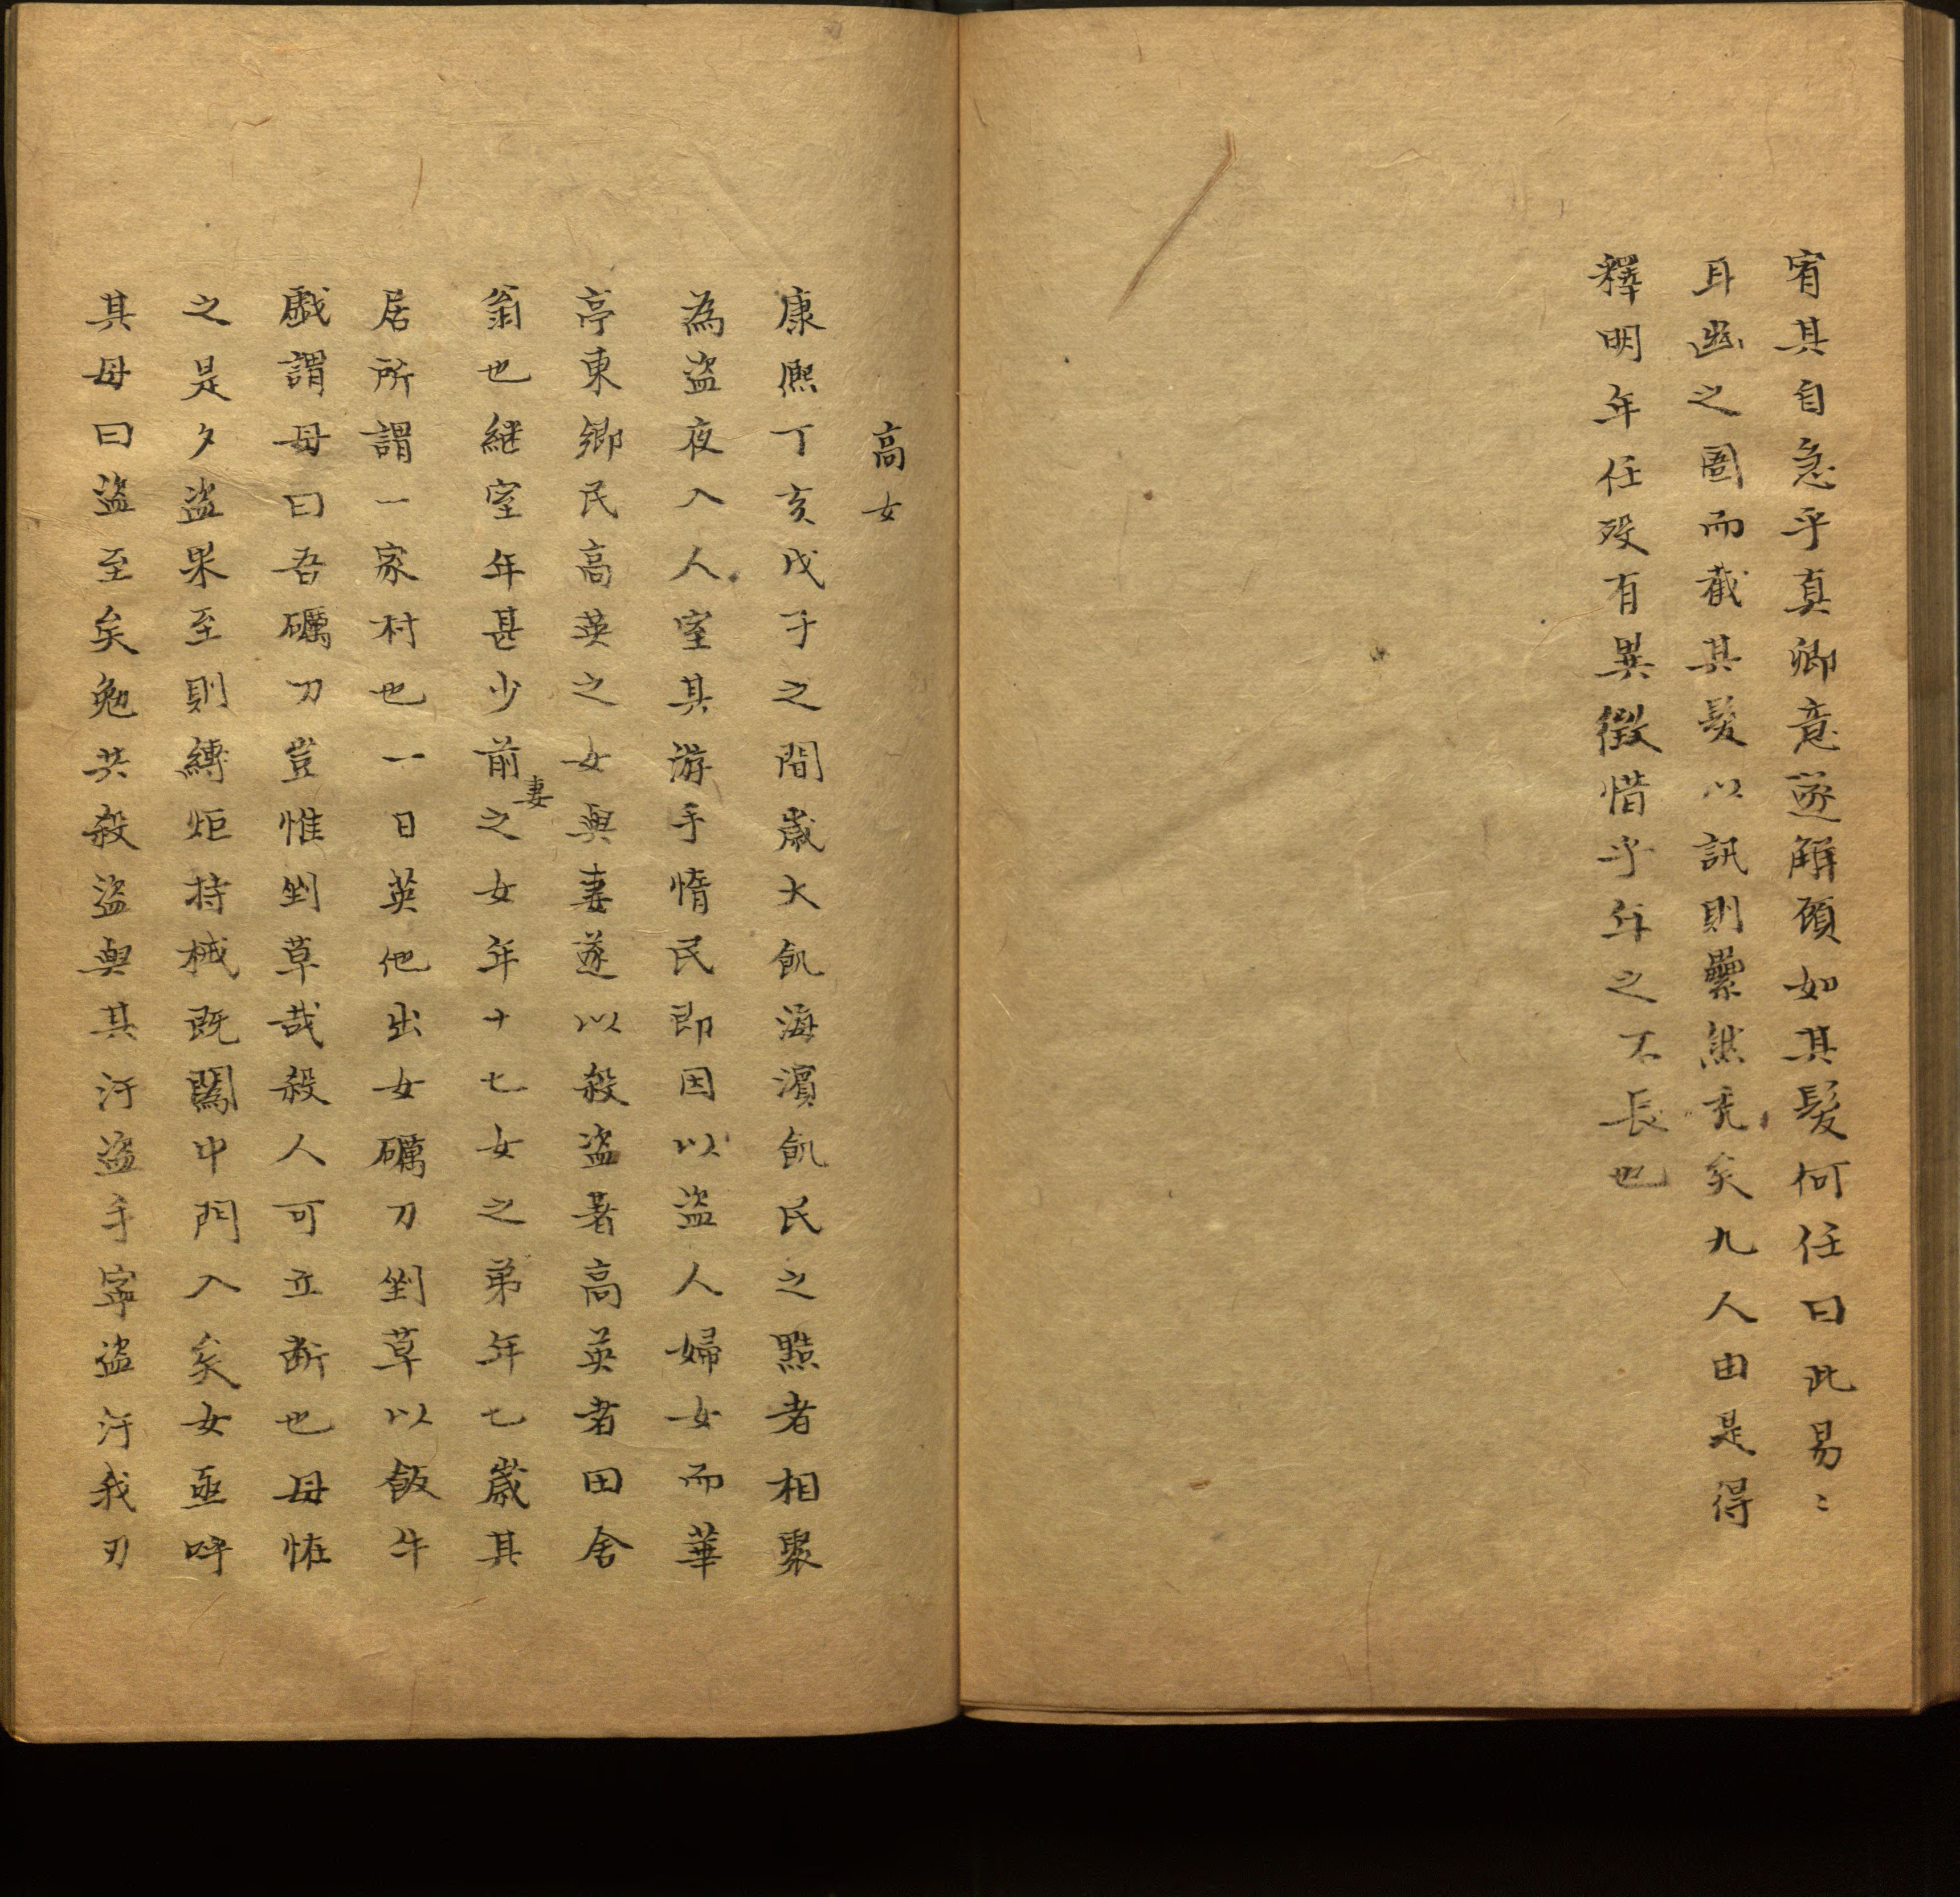 宥其自急乎真卿意遂解顧如其髮何任曰此易〻
耳幽之圄而截其髮以訊則纍然禿矣九人由是得
釋明年任歿有異徵惜乎年之不長也
高女
康熙丁亥戊子之間歲大飢海濵飢民之黠者相聚
為盜夜入人室其游手惰民即因以盜人婦女而華
亭東鄉民高英之女與妻遂以殺盜著高英者田舍
翁也継室年甚少前妻之女年十七女之弟年七歲其
居所謂一家村也一日英他出女礪刀剉草以飯牛
戲謂母曰吾礪刀豈惟剉草哉殺人可立断也母恠
之是夕盜果至則縳炬持械既闖中門入矣女亟呼
其母曰盜至矣勉共殺盜與其汙盜手寧盜汙我刃